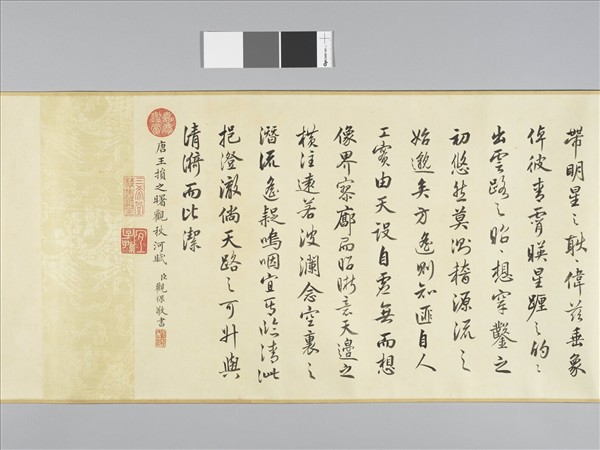 帶明星之耿々偉茲垂象
倬彼青霄暎星躔之的々
出雲路之昭々想穿鑿之
初悠然莫測稽源流之
始邈矣方遙則知匪自人
工寔由天設自虛無而想
像界寥廓而昭晰意天邊之
橫注遠若波瀾念空裏之
潛流遙疑嗚咽宜其臨清泚
挹澄澈倘天路之可升與
清漪而比潔
唐王損之曙觀秋河賦 臣觀保敬書